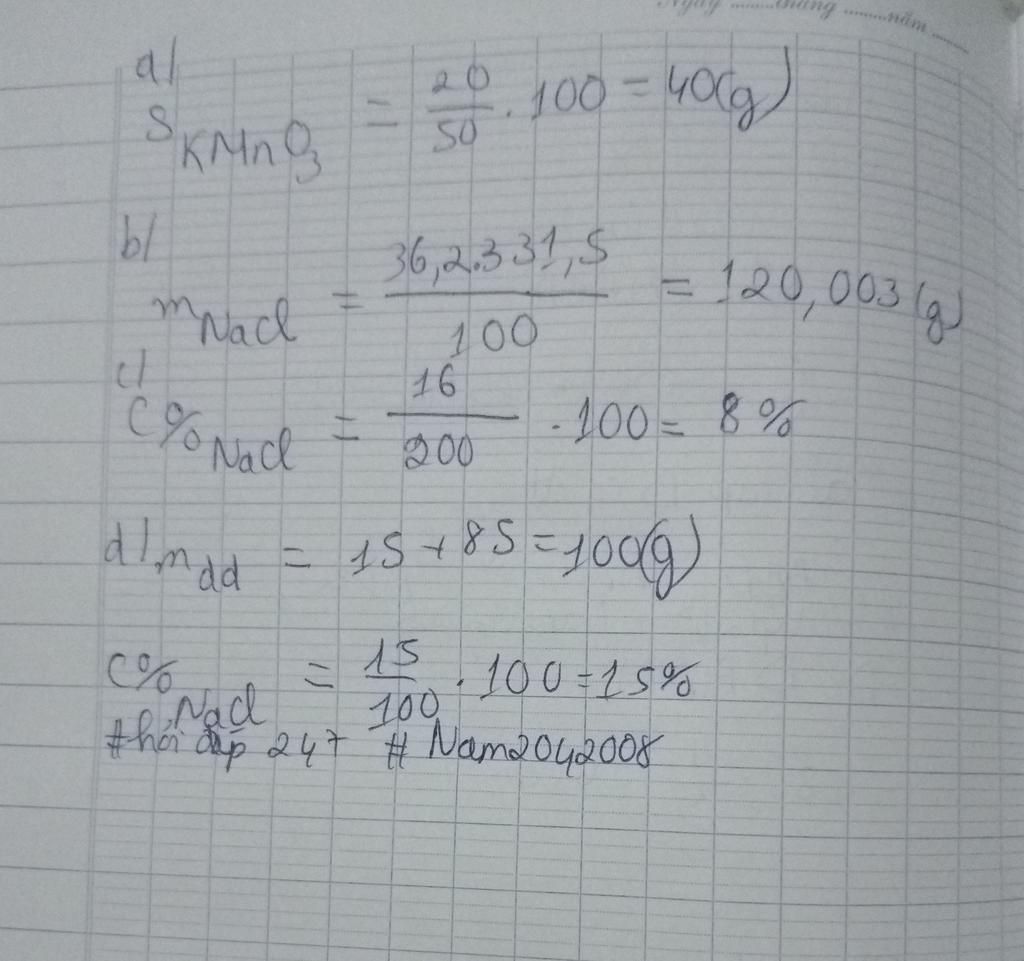 Ngày ........tháng .........năm ......
a/
S KMnO3 = 20/50 . 100 = 40(g)
b/
m NaCl = 36,2.331,5/100 = 120,003 (g)
c/
C% NaCl = 16/200 . 100 = 8 %
d/ m dd = 15 + 85 = 100(g)
C% NaCl = 15/100 . 100 = 15%
#hỏi đáp 247 # Nam2042008